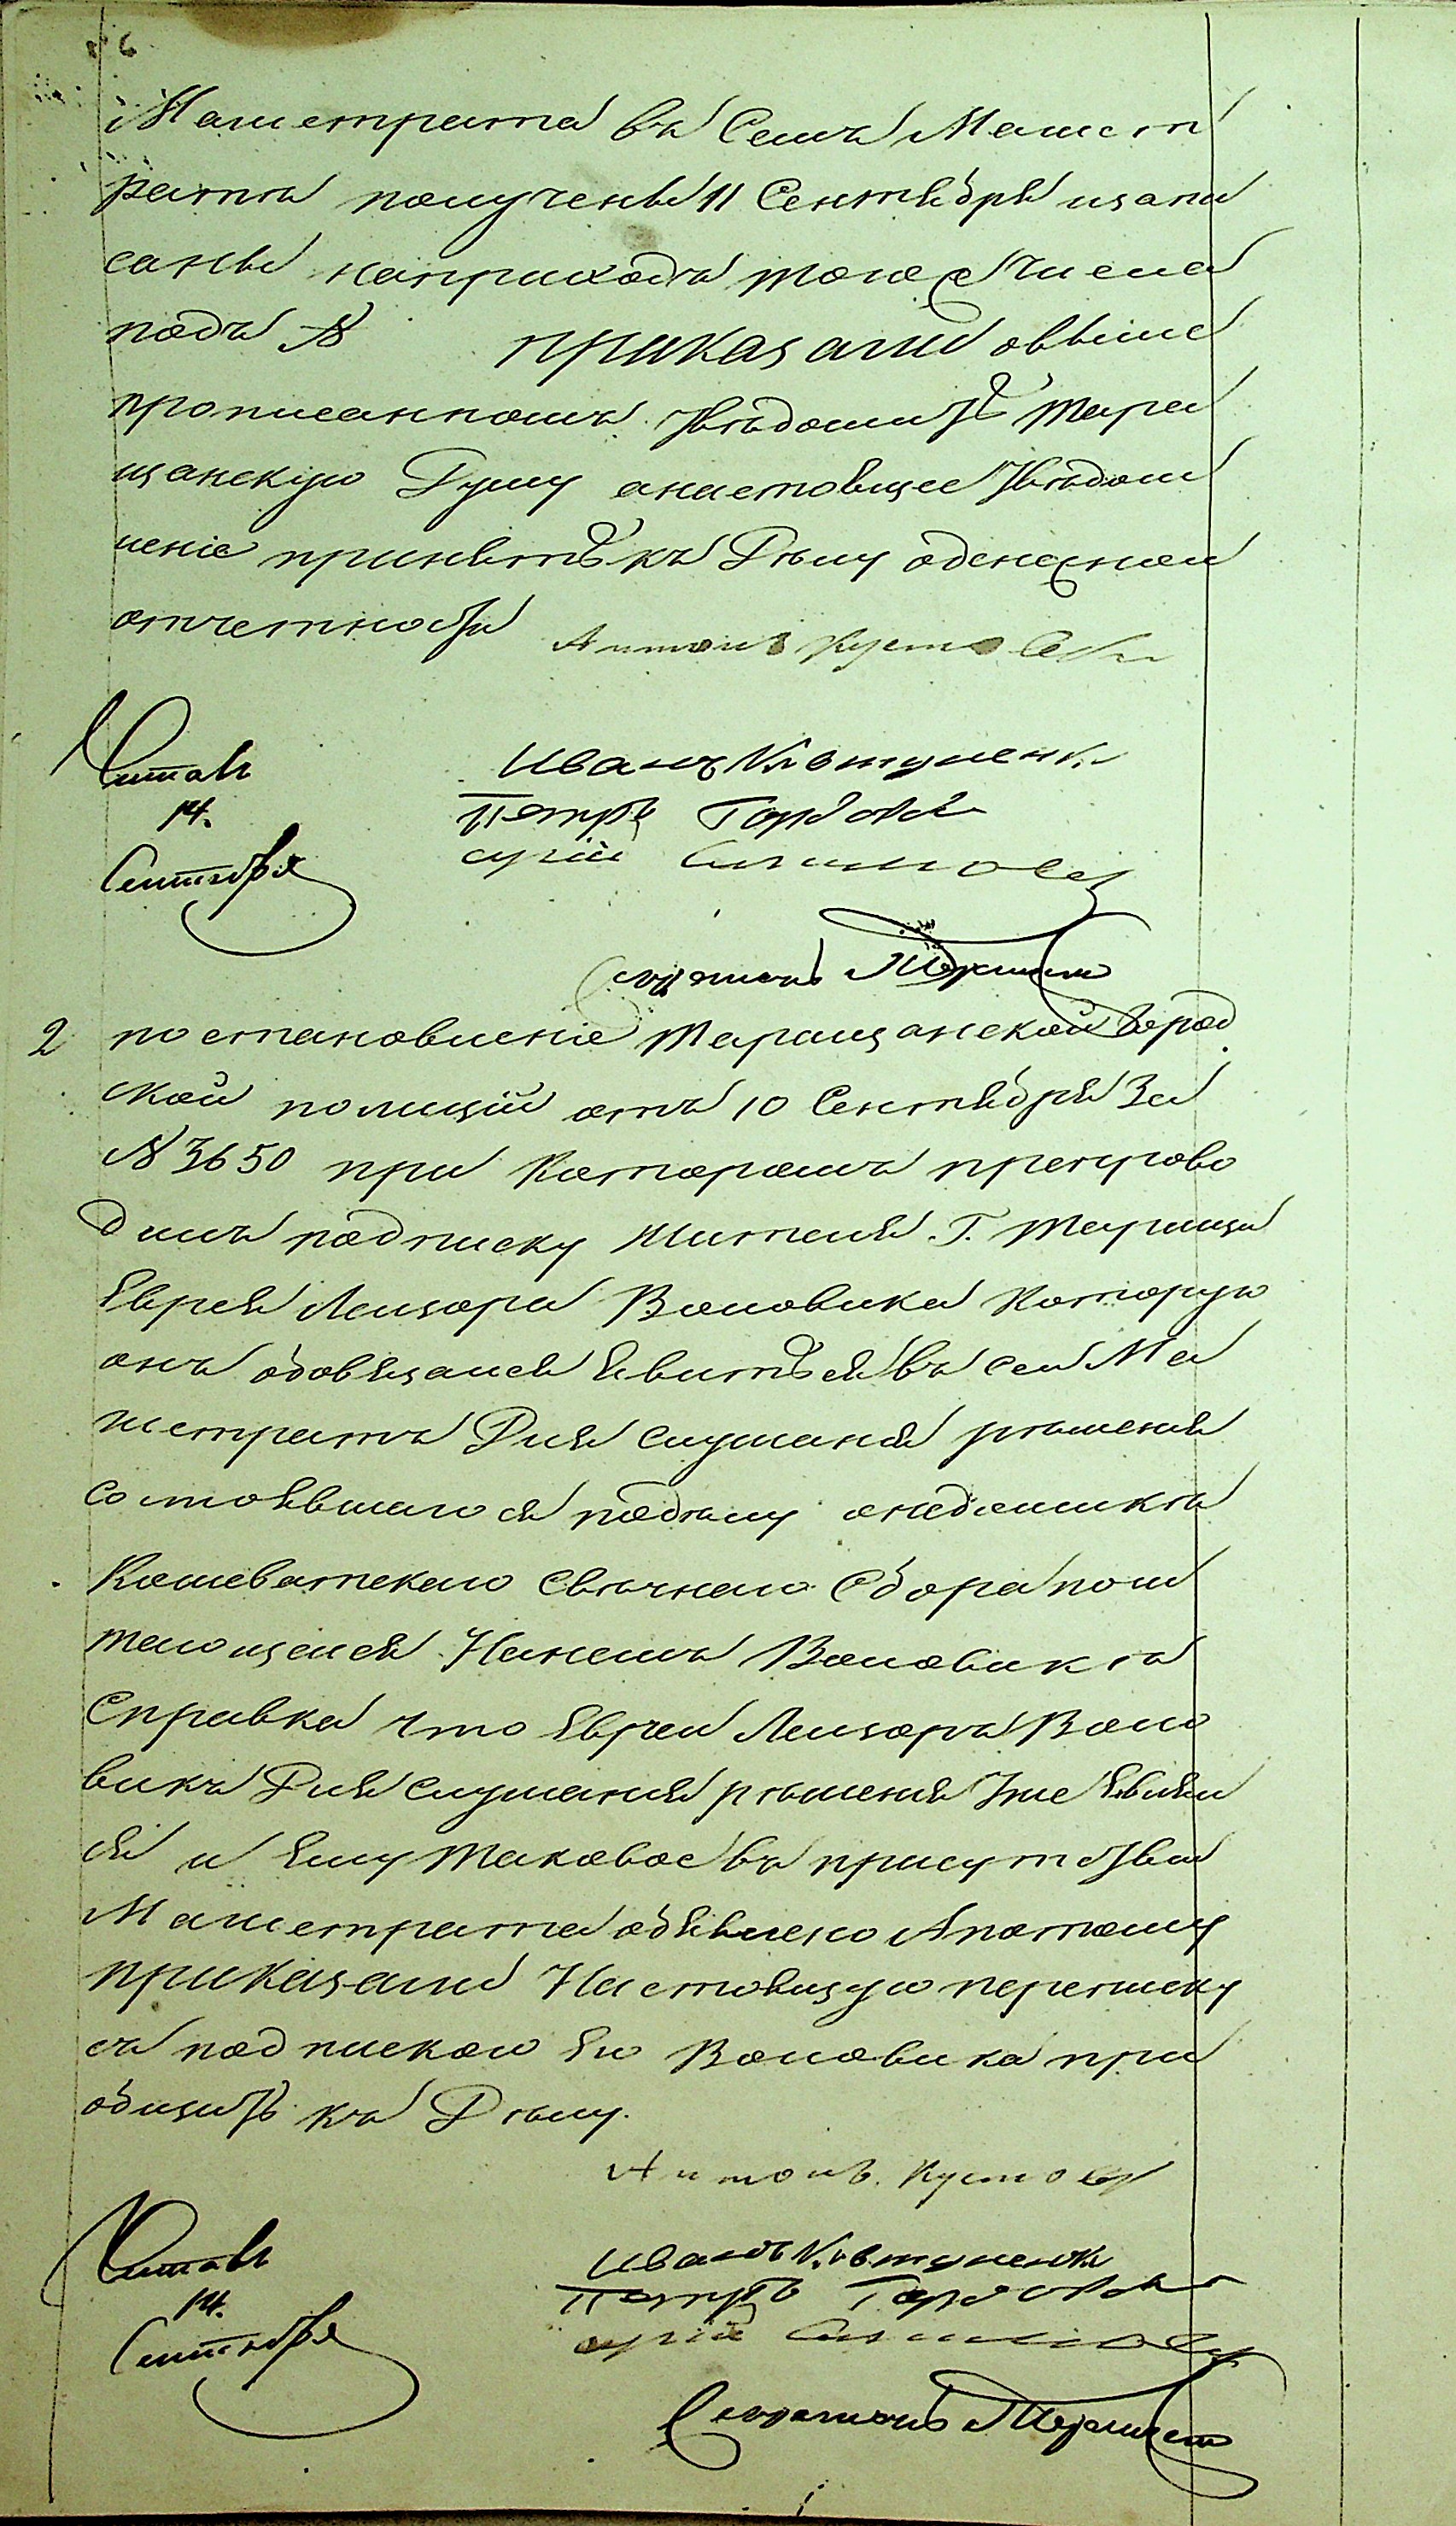 Магистрата въ Семъ Магист
ратъ получены 11 Сентября изапи
саны наприходъ того же Числа
подъ № приказали овыше
прописанномъ Увѣдомить Тара
щанскую Думу анастоящее Увѣдом
леніе принять къ Дѣлу оденежной
отчетности
Антонъ
Читалъ
14.
Сентября
Иванъ Ковтуненко
Петръ
Секретарь
2 постановленіе Таращанской Город
ской полиціи отъ 10 Сентября За
№ 3650 при Которомъ препрово
дилъ подписку Жителя Г. Таращи
Еврея Лейзора Воловика Которую
онъ обовязался Явиться въ сей Ма
гистратъ Для слушанія рѣшенія
состоявшагося подѣлу онедоимкѣ
Кошеватскаго Свѣчнаго Сбора поли
тающейся На немъ Воловикѣ
Справка Что Еврей Лейзоръ Воло
викъ Для слушанія рѣшенія Уже Являл
ся и Ему Таковое въ присутствіи
Магистрата объявлено Апотому
приказали Настоящую переписку
съ подпискою Его Воловика при
общить къ Дѣлу.
Антонъ
Читалъ
14.
Сентября
Иванъ Ковтуненко
Петръ
Секретарь